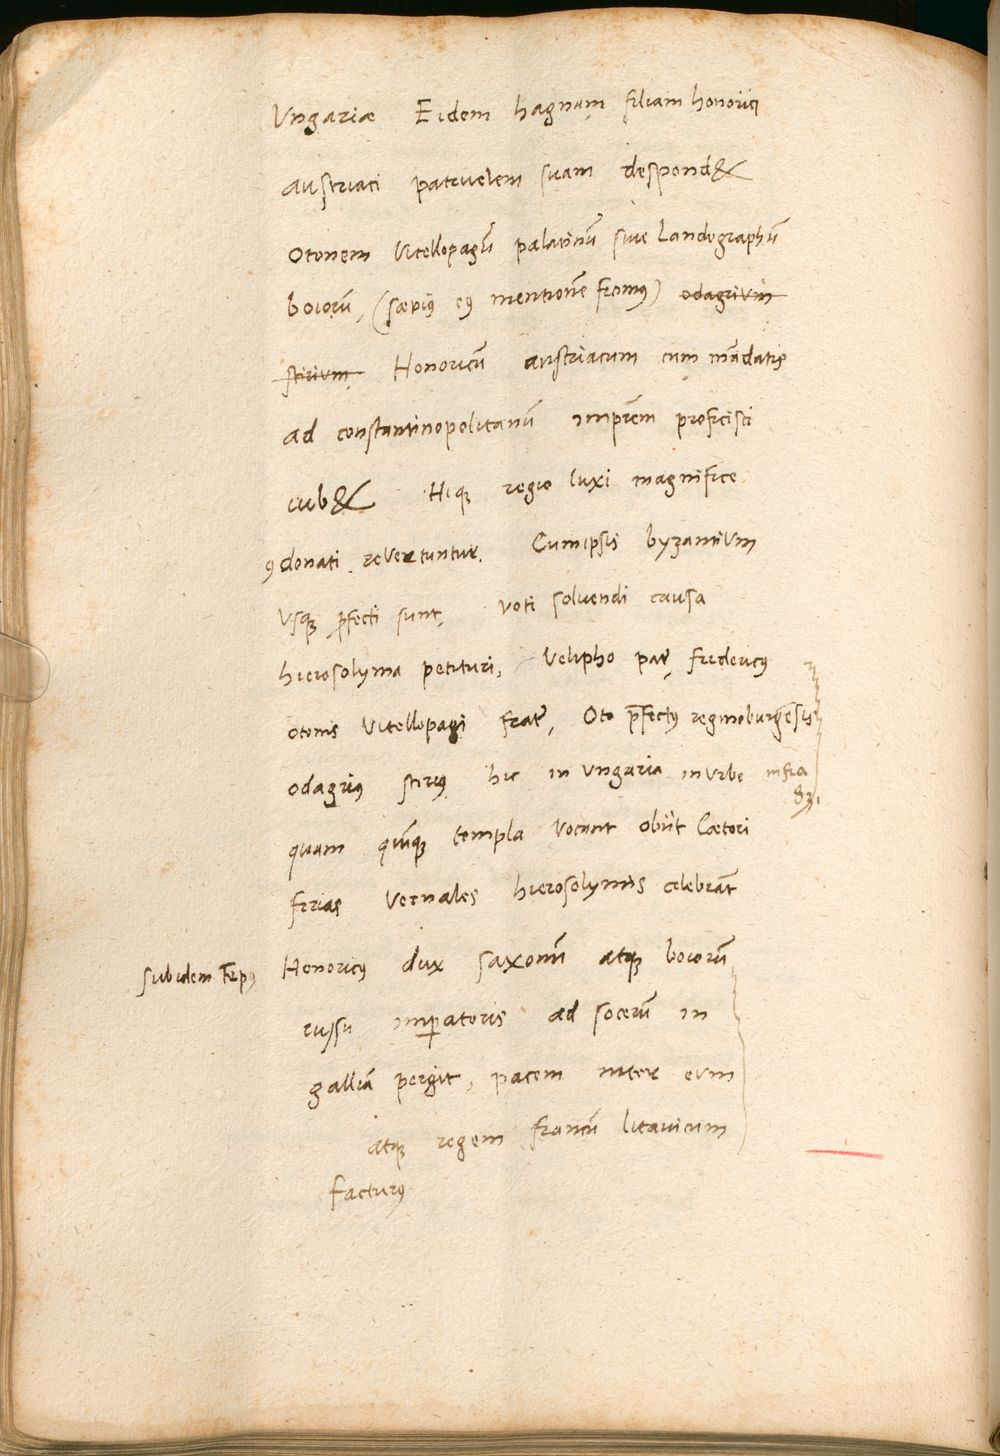 Ungariæ Eidem hagnam filiam honorici
austriaci patruelem suam despond&
Otonem Vitellopagū palatinū siue Landographū
boiorū, (sæpiꝰ eiꝰ mentionē fecimꝰ) odagrium
stirium, Honoricū austriacum cum mādatis
ad constantinopolitanū imprēm proficisci
iub& Hiqꝫ regio luxi magnifice
ꝯdonati revertuntur. Cum ipsis byzantium
Vsqꝫ ꝓfecti sunt, voti soluendi causa
hierosolyma petituri, Velipho pater, fredericꝰ
otonis Vitellopagi frater, Oto p̄fectꝰ reginoburgēsis
odagriꝰ stiriꝰ hic in Ungaria in urbe infra 831
quam quīqꝫ templa vocant obiit Cætori
ferias vernales hierosolymis celebrāt
Sub idem Tēpꝰ Honoricꝰ dux saxonū atqꝫ boiorū
iussu imꝑatoris ad socerū in
galliā pergit, pacem inter eum
atqꝫ regem francū litauicum
facturꝰ